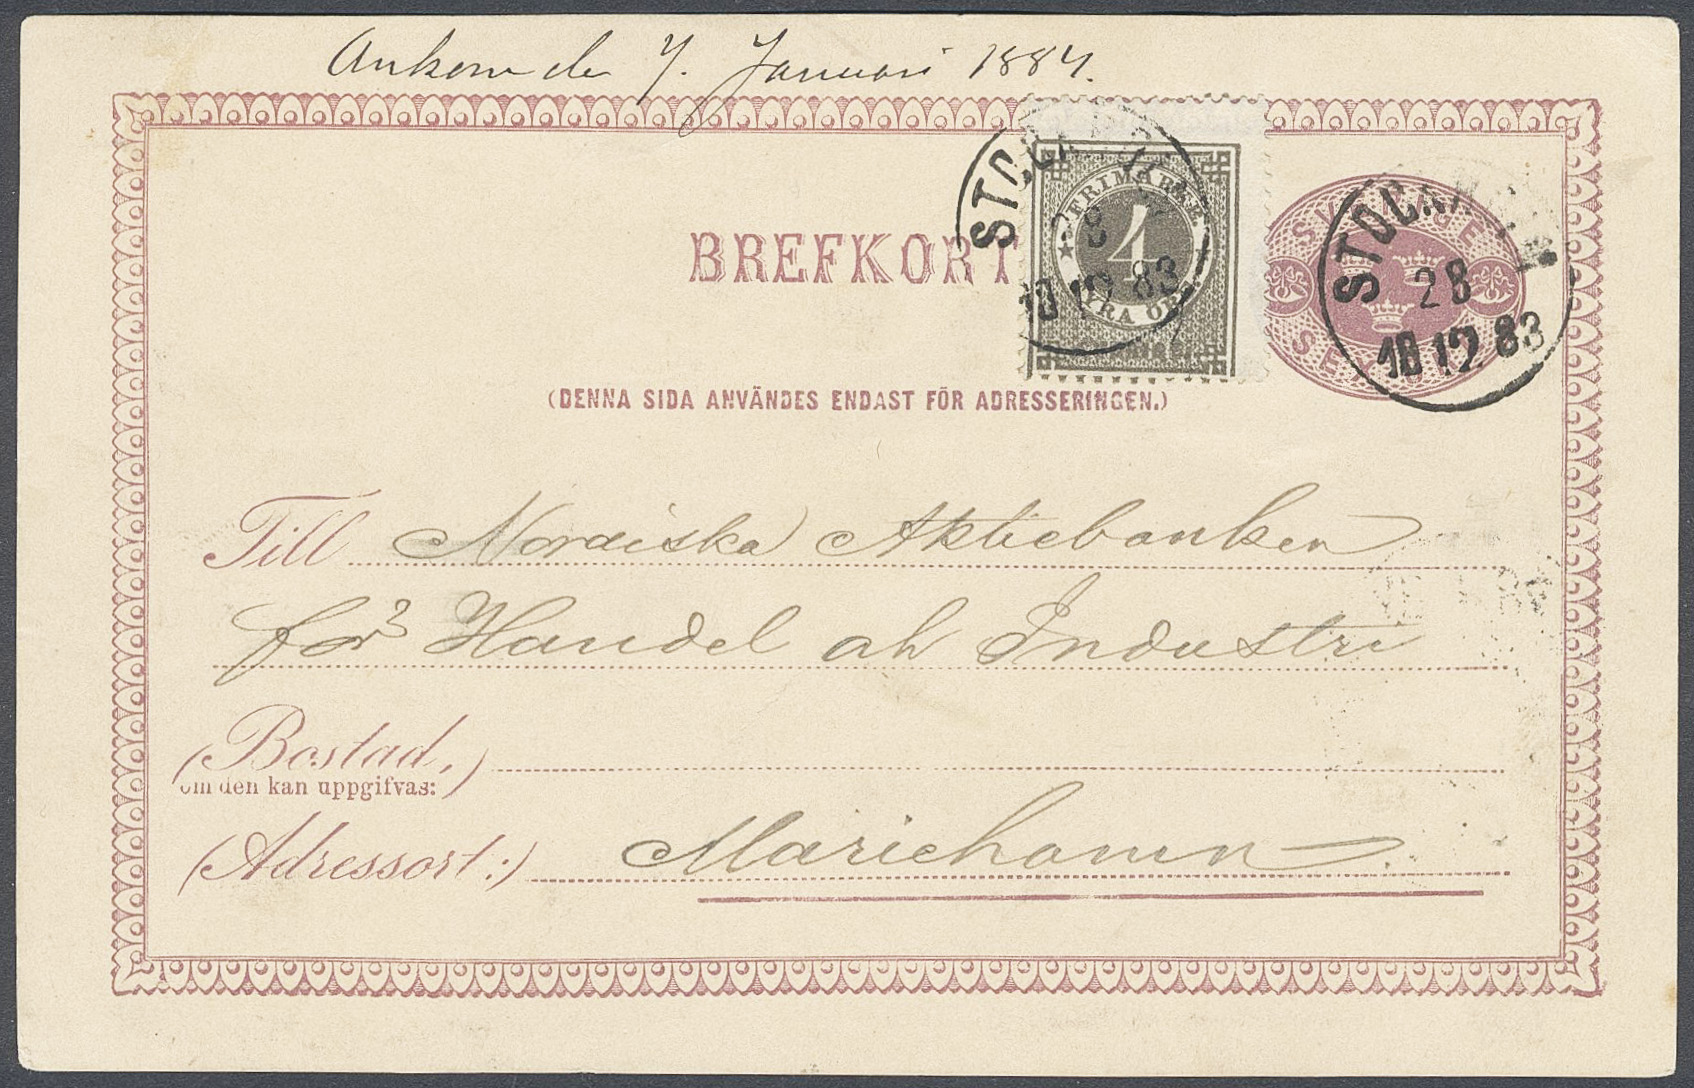 Ankom de 7. Januari 1884.
BREFKORT
FRIMÄRKE
4
FYRA ÖRE
STOCKHOLM
28
10 12 83
SVERIGE
SEX ÖRE
STOCKHOLM
28
10 12 83
(DENNA SIDA ANVÄNDES ENDAST FÖR ADRESSERINGEN.)
Till Nordiska Aktiebanken
för Handel och Industri
(Bostad,)
om den kan uppgifvas:
(Adressort:) Mariehamn